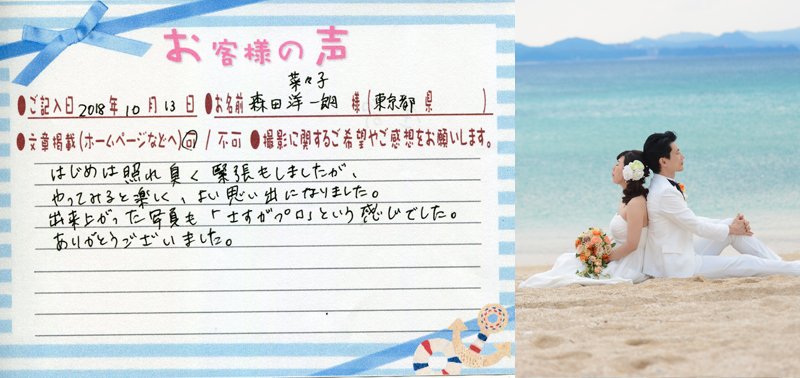 お客様の声
菜々子
●ご記入日 2018年 10月 13日 ●お名前 森田洋一朗 様(東京都 県 )
●文章掲載(ホームページなどへ)可 / 不可 ●撮影に関するご希望やご感想をお願いします。
はじめは照れ臭く緊張もしましたが、
やってみると楽しく、よい思い出になりました。
出来上がった写真も「さすがプロ」という感じでした。
ありがとうございました。